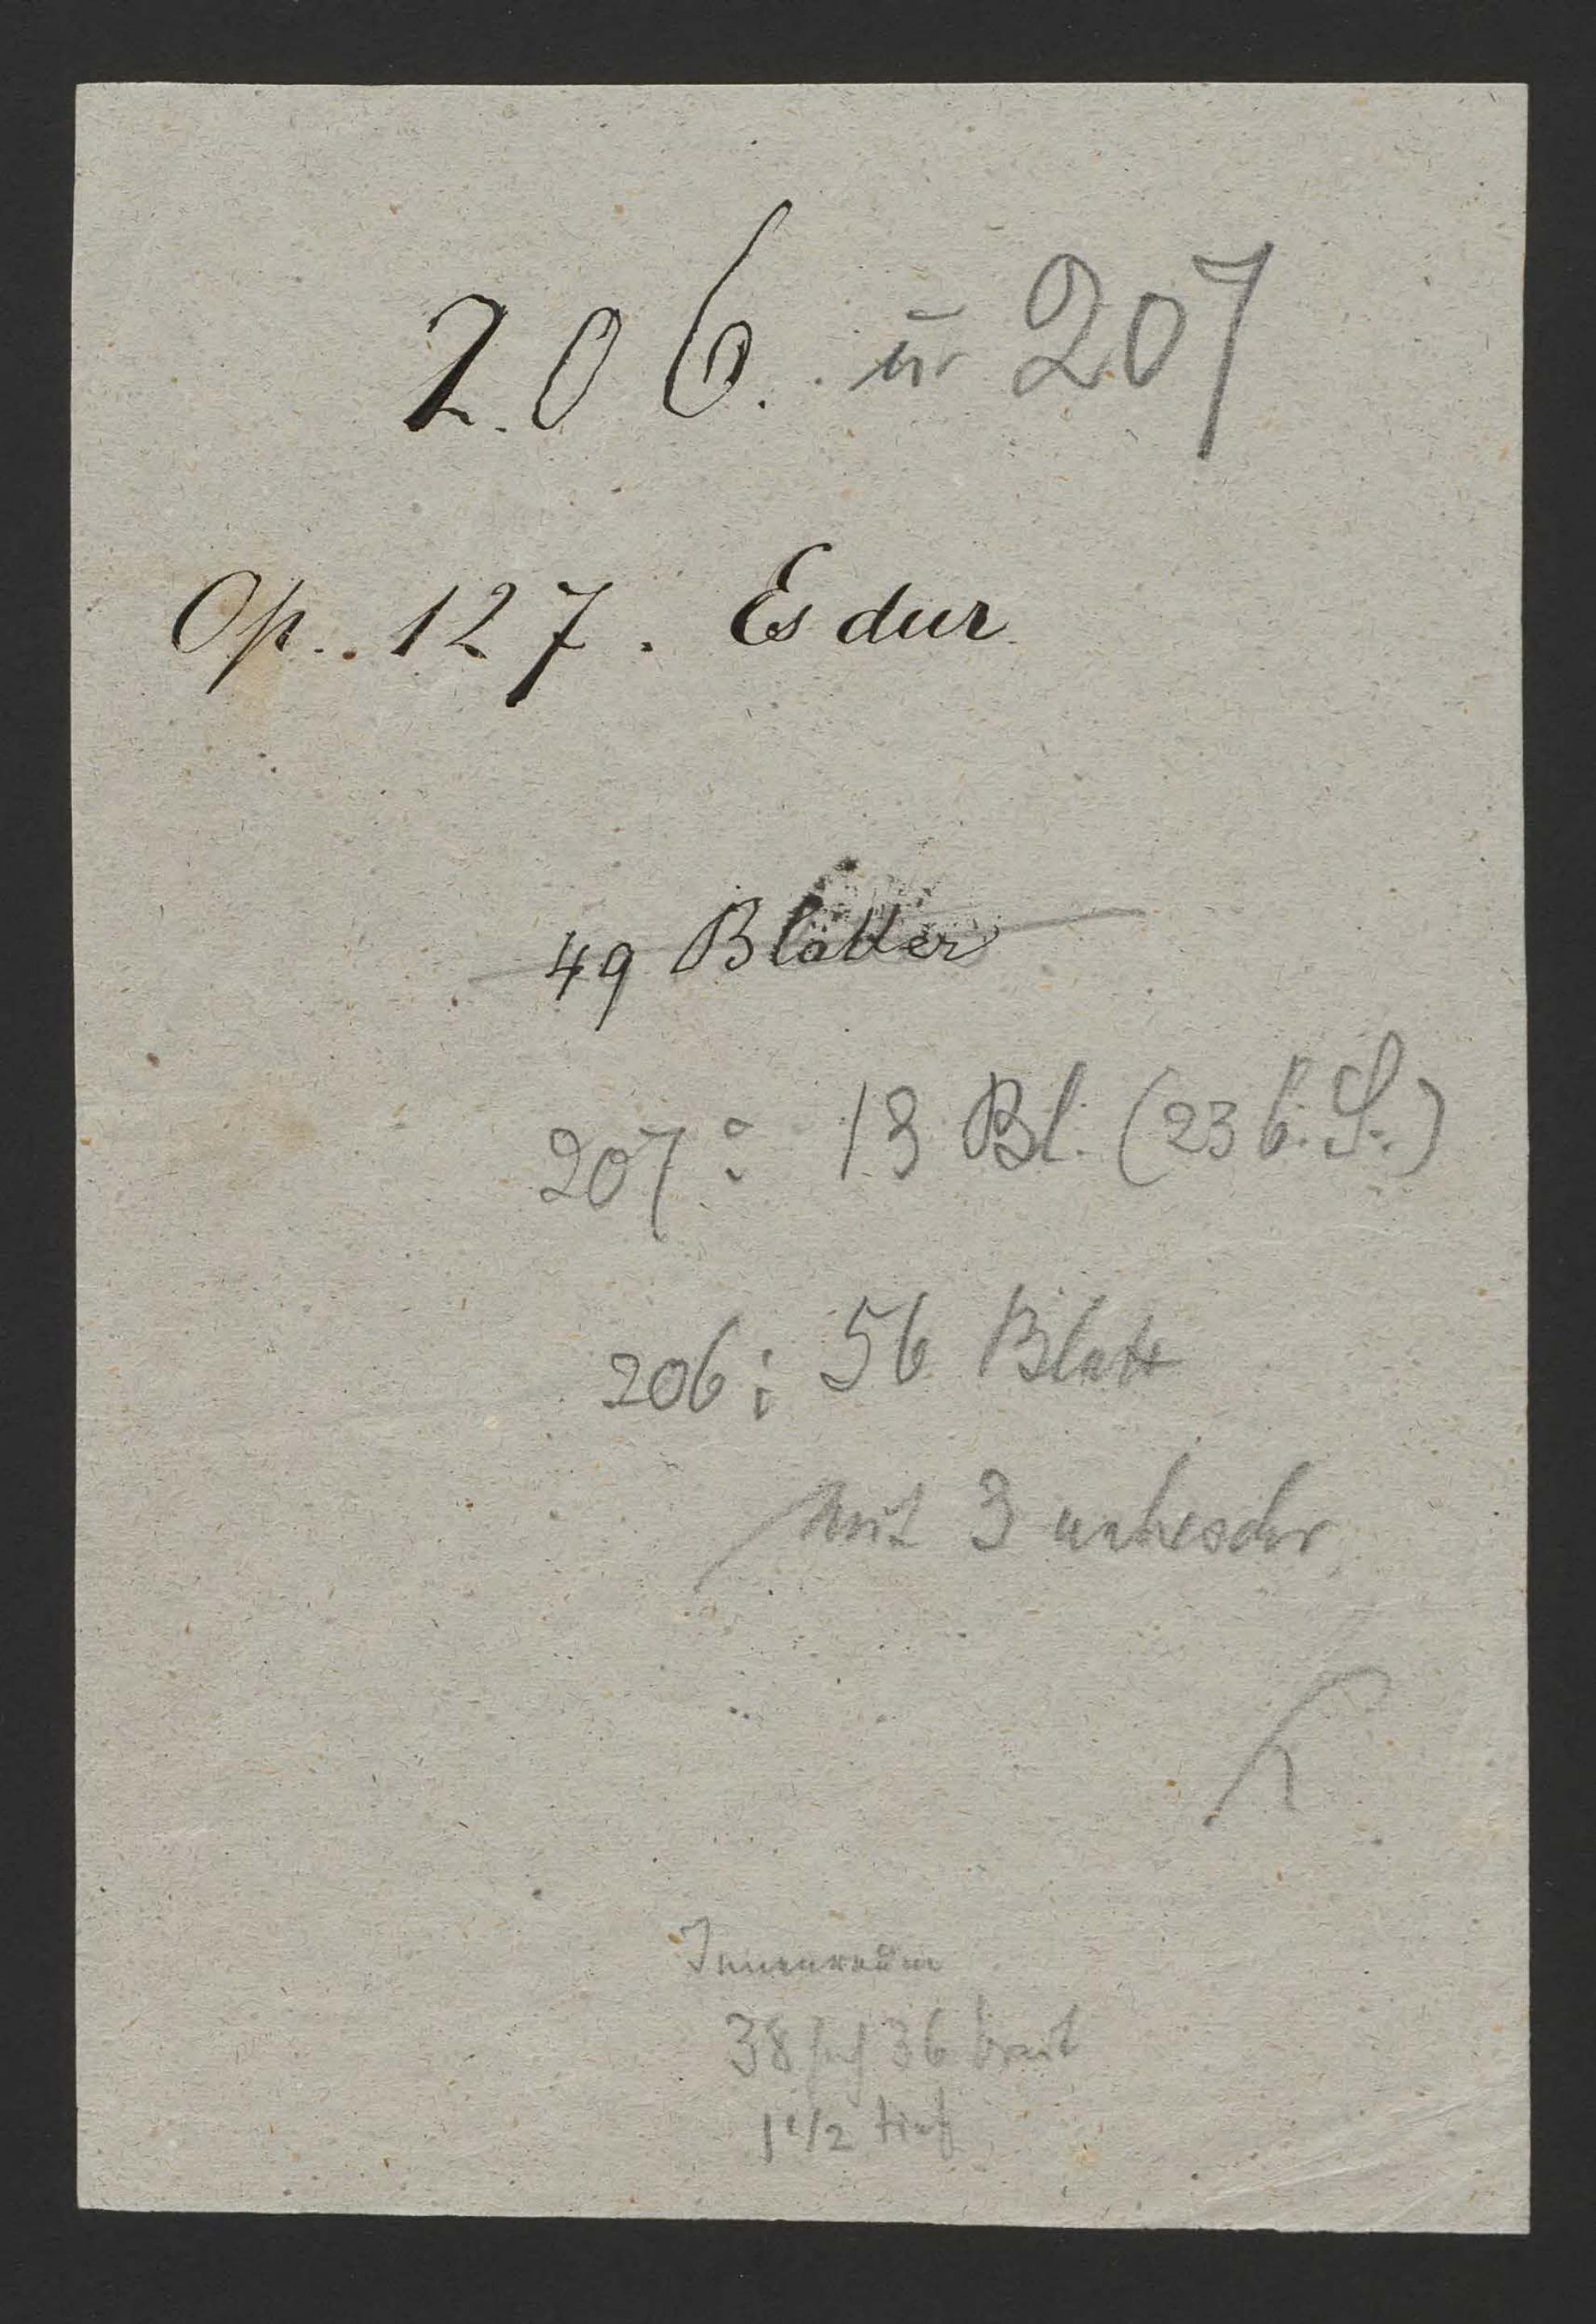 206. u 207
Op. 127. Es dur
49 Blätter
207: 13 Bl. (23 b. S.)
206: 56 Blatt
mit 3 unbeschr.
Innenraum
38 36 breit
1 1/2 tief